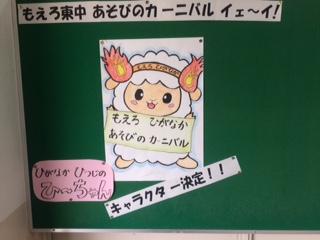 もえろ東中 あそびのカーニバル イェ～イ!
もえろひがなか
もえろ ひがなか
あそびの カーニバル
ひがなか ひつじの
ひーちゃん
キャラクター決定!!